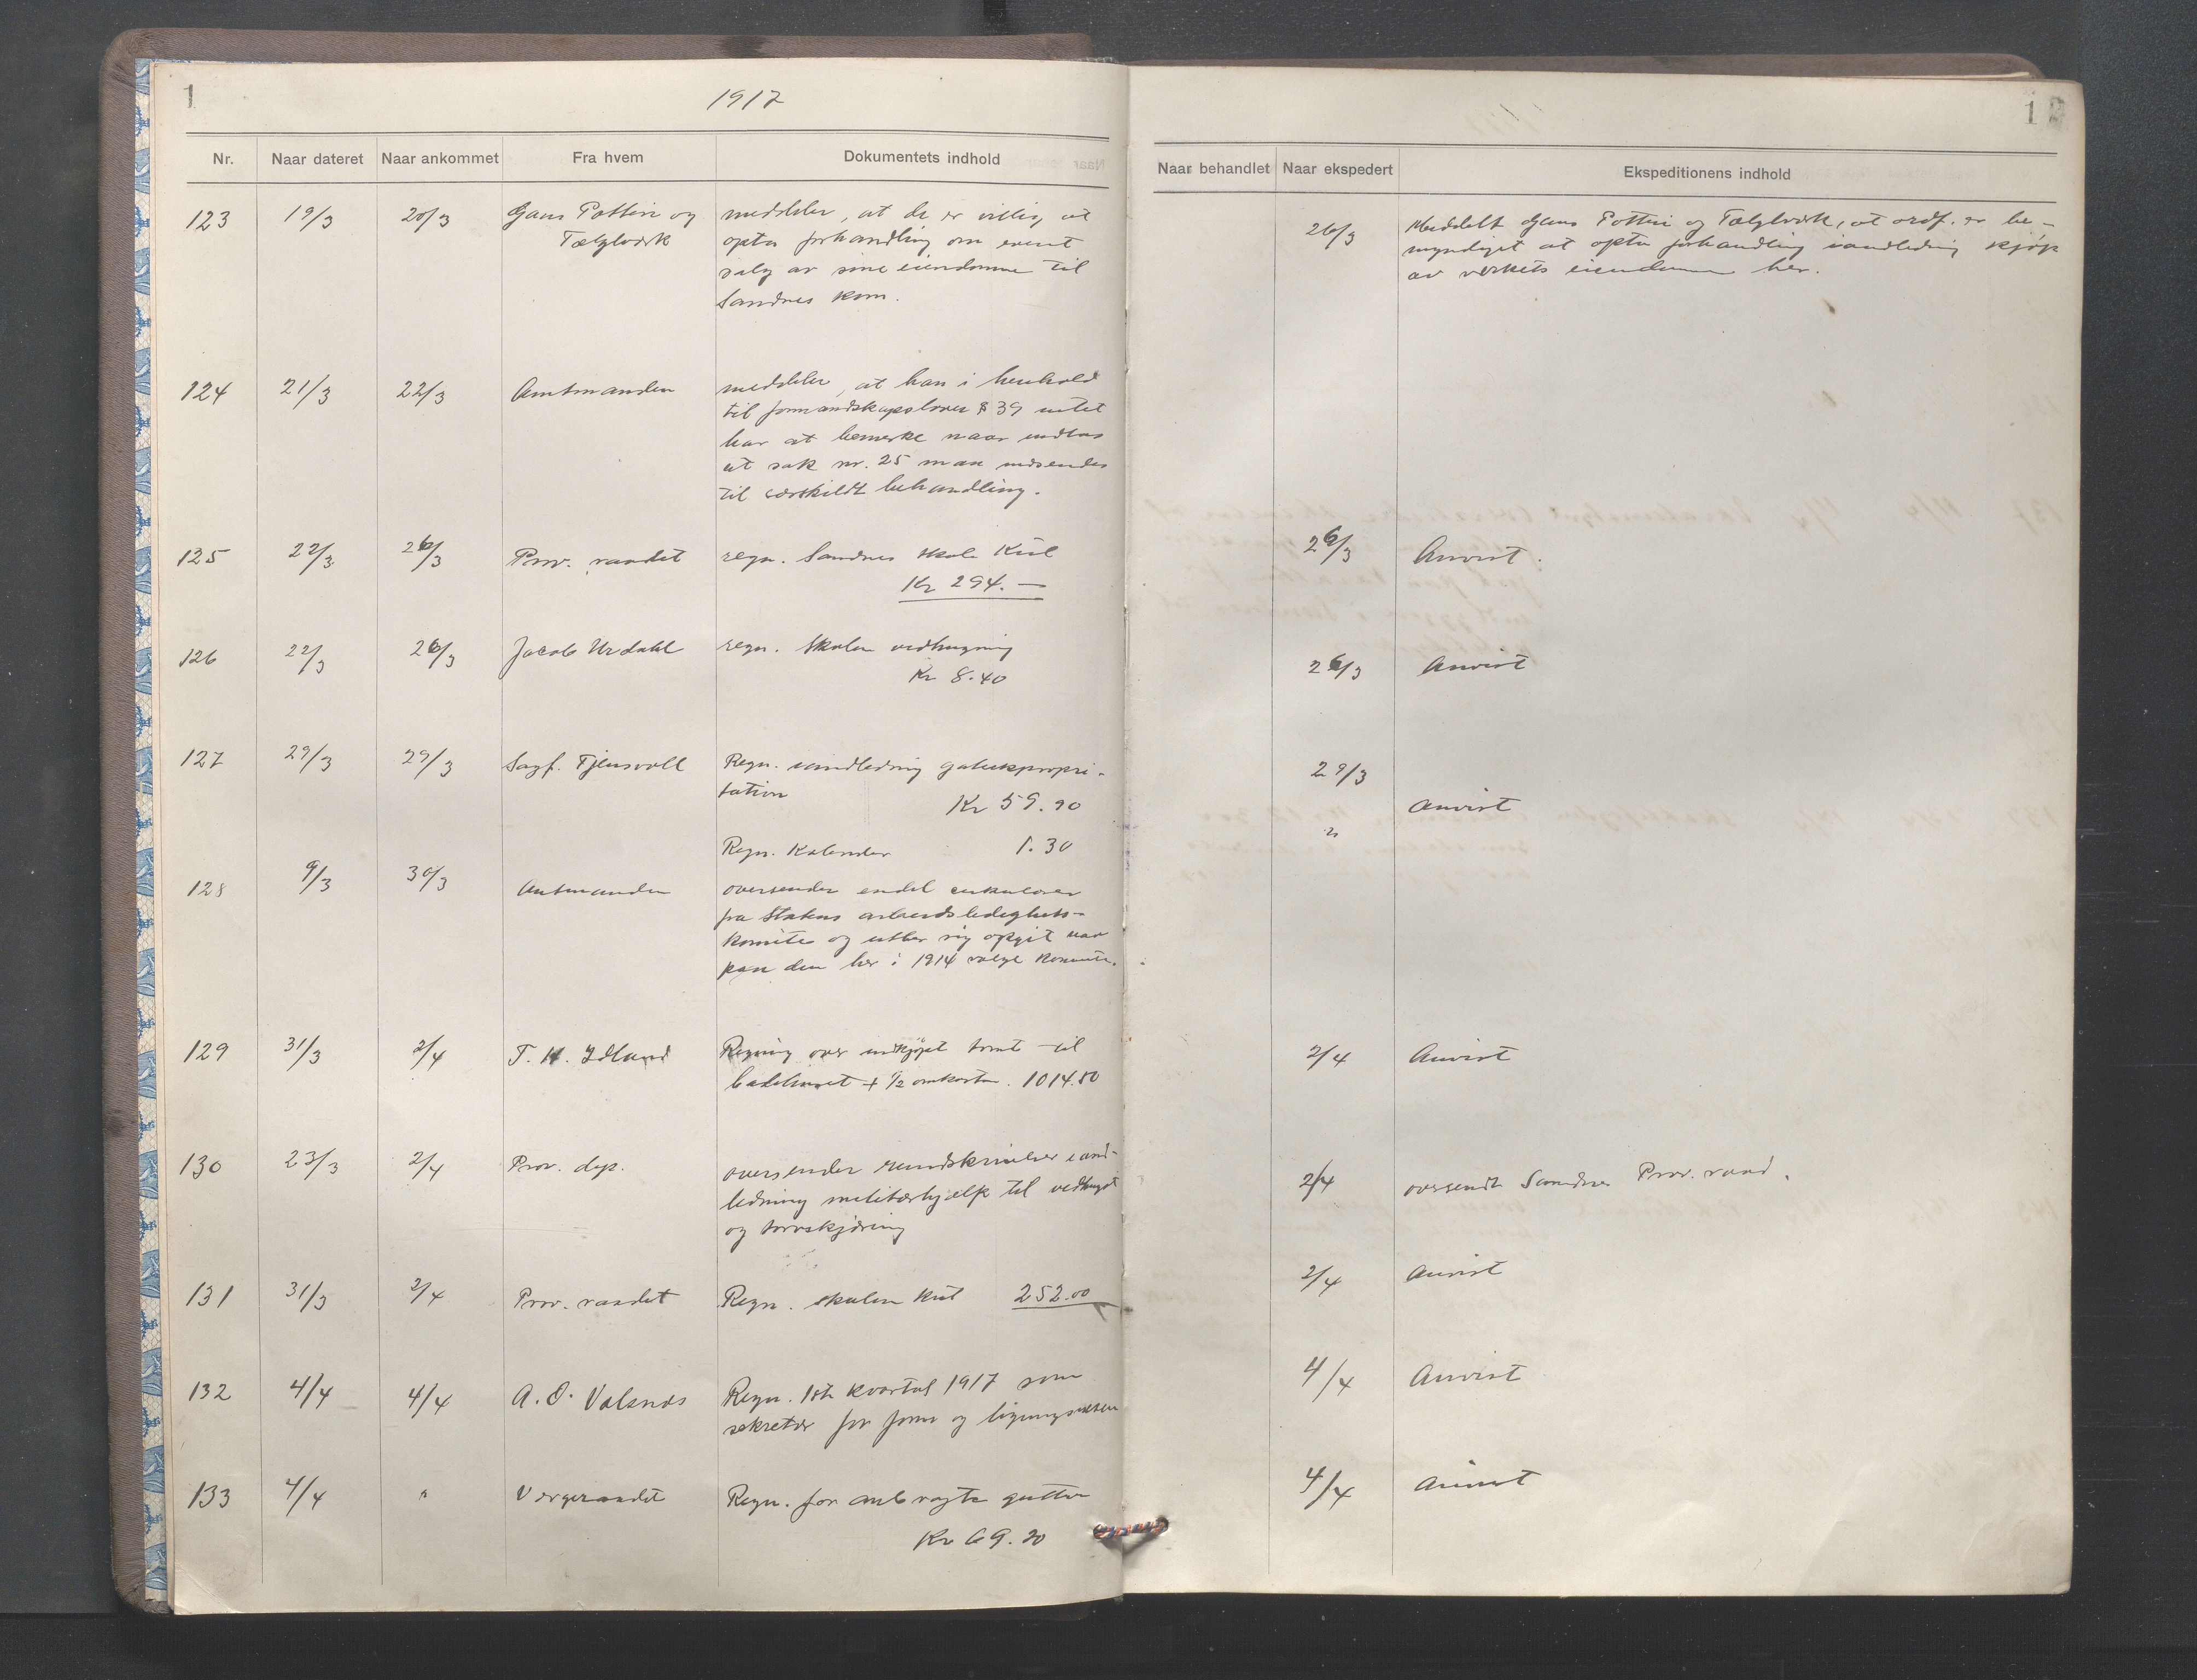 1
1917
Nr. Naar dateret Naar ankommet Fra hvem Dokumentets indhold
123 19/3 20/3 Gans Potteri og meddeler, at de er villig at
Teglverk opta forhandling om event
salg av sine eiendomme til
Sandnes kom.
124 21/3 22/3 Amtmanden meddeler, at han i henhold
til formandskapsloven § 39 intet
har at bemerke naar undtas
at sak nr. 25 maa indsendes
til særskildt behandling.
125 22/3 26/3 Prov. raadet regn. Sandnes skole Kul
Kr 294.—
126 22/3 26/3 Jacob Urdahl regn. Skolen vedhugning
Kr 8.40
127 29/3 29/3 Sagf. Tjensvoll Regn. andledning gatekspropri-
ation
Kr 59.90
Regn. Kalender 1.30
128 9/3 30/3 Amtmanden oversender endel cirkulærer
fra Statens arbeidsledighets-
komite og utber sig opgit
paa den her i 1914 valgt komite.
129 31/3 2/4 T. H. Idland Regning over indkjøpt tomt til
badehuset + 1/2 omkostn. 1014.50
130 23/3 2/4 Prov. dep. oversender rundskrivelser i and-
ledning militærhjælp til vedhugst
og torvskjæring
131 31/3 2/4 Prov. raadet Regn. skolen kul 252.00
132 4/4 4/4 A. O. Valsnes Regn. 1ste kvartal 1917 som
sekretær for form og ligningsvesen
133 4/4 " Vergeraadet Regn. for anbragte gutter
Kr 69.20
1
Naar behandlet Naar ekspedert Ekspeditionens indhold
26/3 Meddelt Gans Potteri og Teglverk, at ordf. er be-
myndiget at opta forhandling i andledning kjøp
av verkets eiendomme her.
26/3 Anvist.
26/3 Anvist
29/3
Anvist
"
2/4 Anvist
2/4 oversendt Sandnes Prov. raad.
2/4 Anvist
4/4 Anvist
4/4 Anvist